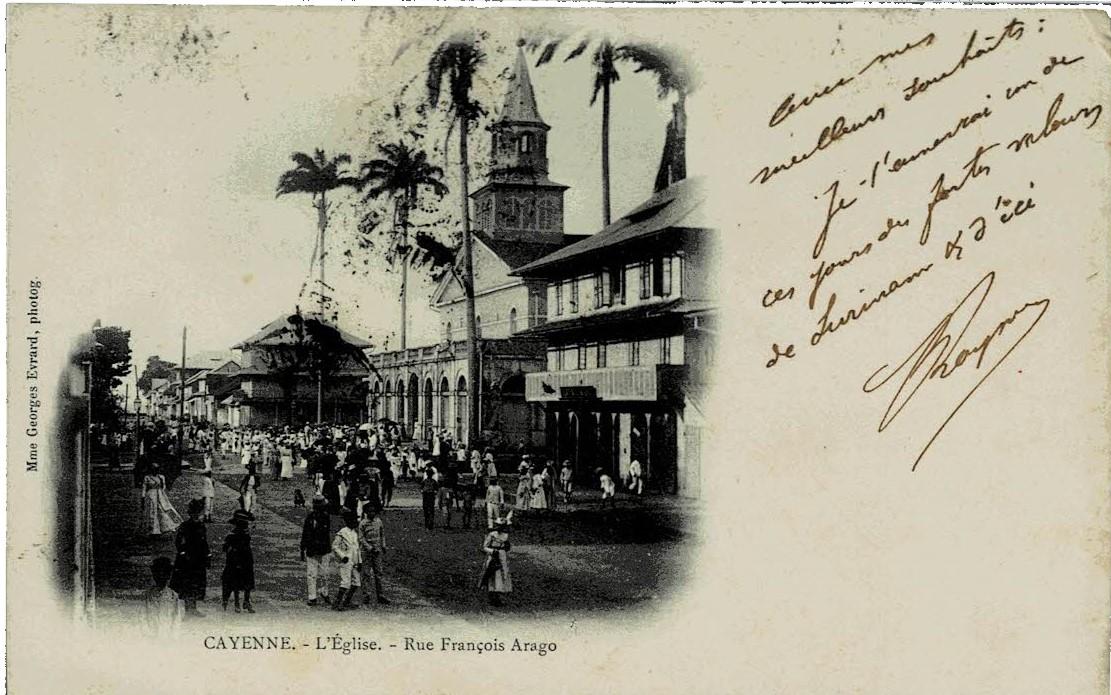 Mme Georges Evrard, photog.
CAYENNE. - L'Église. - Rue François Arago
Avec mes
meilleurs souhaits :
Je t'enverrai un de
ces jours des portes
de Surinam & d'ici